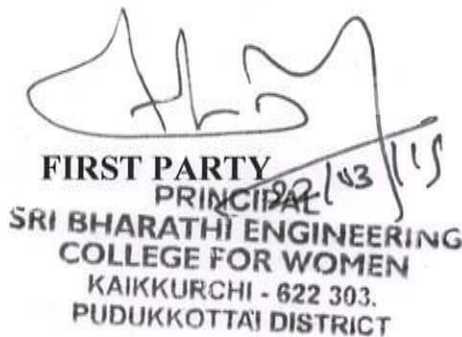 FIRST PARTY
PRINCIPAL
SRI BHARATHI ENGINEERING
COLLEGE FOR WOMEN
KAIKKURCHI - 622 303.
PUDUKKOTTAI DISTRICT